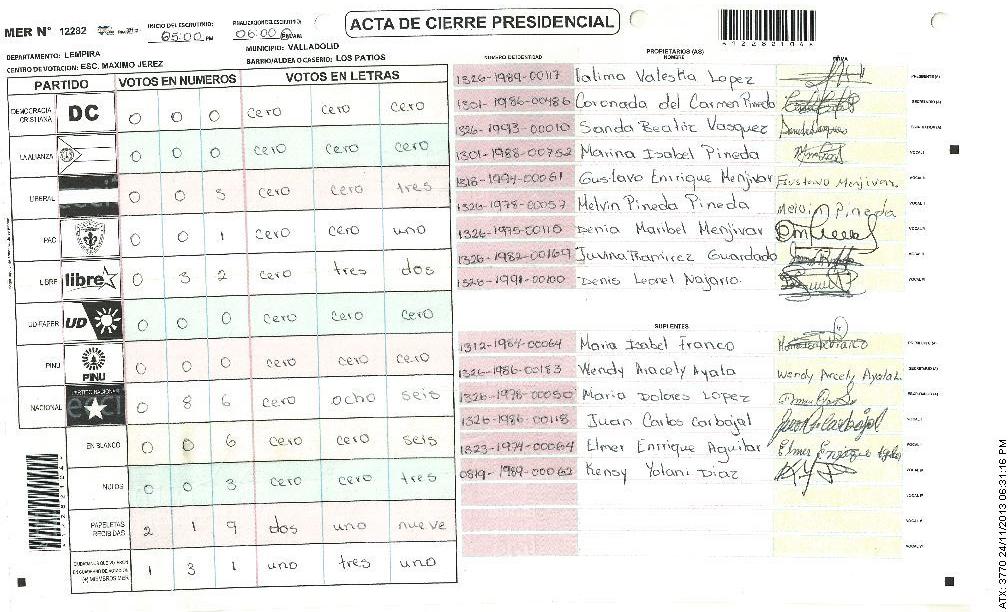 ACTA DE CIERRE PRESIDENCIAL
MER N° 12282
INICIO DEL ESCRUTINIO: 05:00 PM
FINALIZACION DEL ESCRUTINIO: 06:00
DEPARTAMENTO: LEMPIRA
MUNICIPIO: VALLADOLID
CENTRO DE VOTACION: ESC. MAXIMO JEREZ
BARRIO/ALDEA O CASERIO: LOS PATIOS
PARTIDO VOTOS EN NUMEROS VOTOS EN LETRAS
DEMOCRACIA CRISTIANA DC 0 0 0 cero cero cero
LA ALIANZA 0 0 0 cero cero cero
LIBERAL 0 0 3 cero cero tres
PAC 0 0 1 cero cero uno
LIBRE libre 0 3 2 cero tres dos
UD-FAPER UD 0 0 0 cero cero cero
PINU PINU 0 0 0 cero cero cero
NACIONAL 0 8 6 cero ocho seis
EN BLANCO 0 0 6 cero cero seis
NULOS 0 0 3 cero cero tres
PAPELETAS RECIBIDAS 2 1 9 dos uno nueve
1 3 1 uno tres uno
PROPIETARIOS (AS)
NUMERO DE IDENTIDAD NOMBRE FIRMA
1326-1989-00117 Fatima Valestia Lopez PRESIDENTE (A)
1301-1986-00486 Coronada del Carmen Pineda SECRETARIO (A)
1326-1993-00010 Sanda Beatriz Vasquez ESCRUTADOR (A)
1301-1988-00752 Marina Isabel Pineda VOCAL I
1318-1994-00061 Gustavo Enrique Menjivar Gustavo Menjivar
1326-1978-00057 Melvin Pineda Pineda Melvin Pineda
1326-1975-00115 Denia Maribel Menjivar
1326-1982-00169 Juvina Ramirez Guardado
1326-1991-00100 Denis Leonel Najario
SUPLENTES
1312-1984-00064 Maria Isabel Franco PRESIDENTE (A)
1326-1986-00183 Wendy Aracely Ayala Wendy Arcely Ayala SECRETARIO (A)
1326-1978-00050 Maria Dolores Lopez ESCRUTADOR (A)
1326-1986-00118 Juan Carlos Carbajal Juan C Carbajal
1323-1974-00064 Elmer Enrique Aguilar Elmer Enrique
0819-1989-00062 Kensy Yolani Diaz
ATX: 3770 24/11/2013 06:31:16 PM